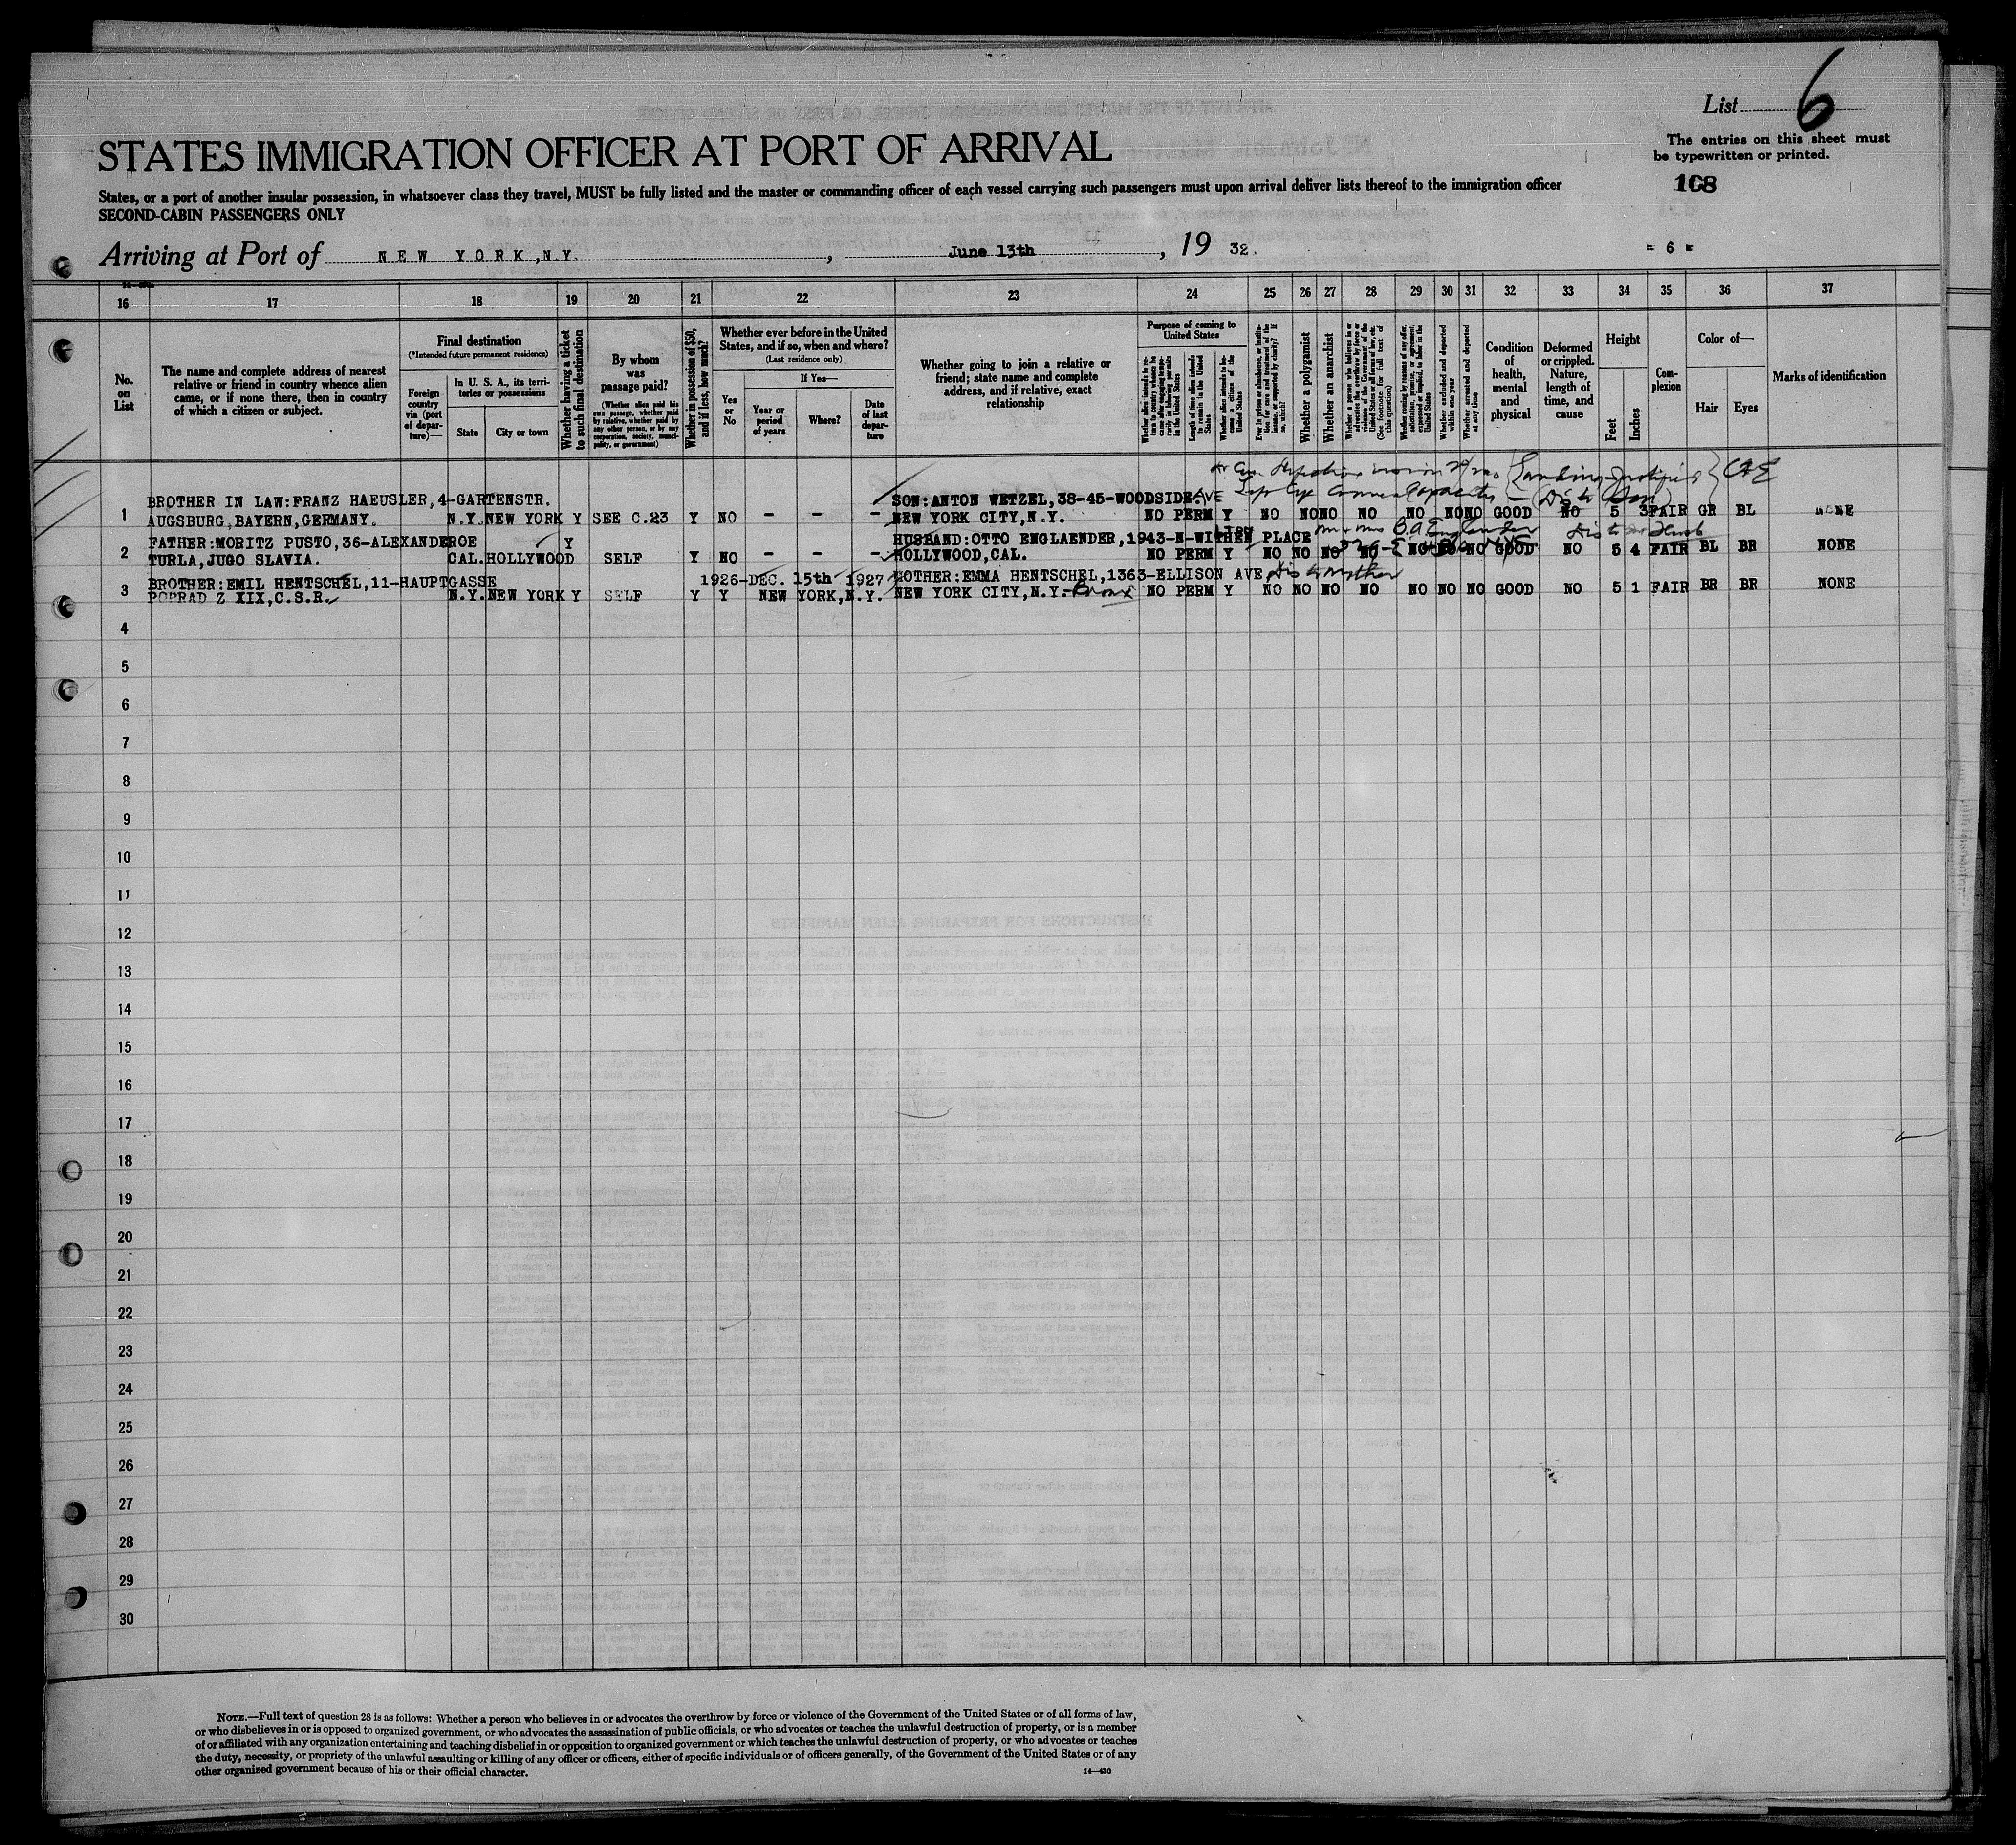 List 6
The entries on this sheet must
be typewritten or printed.
168
STATES IMMIGRATION OFFICER AT PORT OF ARRIVAL
States, or a port of another insular possession, in whatsoever class they travel, MUST be fully listed and the master or commanding officer of each vessel carrying such passengers must upon arrival deliver lists thereof to the immigration officer
SECOND-CABIN PASSENGERS ONLY
Arriving at Port of NEW YORK, N.Y. , June 13th , 19 32.
- 6 -
16 17 18 19 20 21 22 23 24 25 26 27 28 29 30 31 32 33 34 35 36 37
No. on List
The name and complete address of nearest relative or friend in country whence alien came, or if none there, then in country of which a citizen or subject.
Final destination
(*Intended future permanent residence)
Foreign country via (port of departure)—
In U. S. A., its territories or possessions
State
City or town
Whether having a ticket to such final destination
By whom was passage paid?
(Whether alien paid his own passage, whether paid by relative, whether paid by any other person, or by any corporation, society, municipality, or government)
Whether in possession of $50, and if less, how much?
Whether ever before in the United States, and if so, when and where?
(Last residence only)
Yes or No
If Yes—
Year or period of years
Where?
Date of last departure
Whether going to join a relative or friend; state name and complete address, and if relative, exact relationship
Purpose of coming to United States
Whether alien intends to return to country whence he came after engaging temporarily in laboring pursuits in the United States
Length of time alien intends to remain in the United States
Whether alien intends to become a citizen of the United States
Ever in prison or almshouse, or institution for care and treatment of the insane, or supported by charity? If so, which?
Whether a polygamist
Whether an anarchist
Whether a person who believes in or advocates the overthrow by force or violence of the Government of the United States or all forms of law, etc. (See footnote for full text of this question)
Whether coming by reason of any offer, solicitation, promise, or agreement, expressed or implied, to labor in the United States
Whether excluded and deported within one year
Whether arrested and deported at any time
Condition of health, mental and physical
Deformed or crippled. Nature, length of time, and cause
Height
Feet
Inches
Complexion
Color of—
Hair
Eyes
Marks of identification
Landing Justified CAE
Left Eye
Dis to Son
1 BROTHER IN LAW:FRANZ HAEUSLER,4-GARTENSTR. SON:ANTON WETZEL,38-45-WOODSIDE.AVE
AUGSBURG,BAYERN,GERMANY. N.Y. NEW YORK Y SEE C.23 Y NO - - - NEW YORK CITY,N.Y. NO PERM Y NO NO NO NO NO NO NO GOOD NO 5 3 FAIR GR BL NONE
2 FATHER:MORITZ PUSTO,36-ALEXANDEROE Y HUSBAND:OTTO ENGLAENDER,1943-N-WITHEN PLACE
TURLA,JUGO SLAVIA. CAL. HOLLYWOOD SELF Y NO - - - HOLLYWOOD,CAL. NO PERM Y NO NO NO NO NO NO NO GOOD NO 5 4 FAIR BL BR NONE
3 BROTHER:EMIL HENTSCHEL,11-HAUPTGASSE 1926-DEC. 15th 1927 MOTHER:EMMA HENTSCHEL,1363-ELLISON AVE, Dis to Mother
POPRAD Z XIX,C.S.R. N.Y. NEW YORK Y SELF Y Y NEW YORK,N.Y. NEW YORK CITY,N.Y.-Bronx NO PERM Y NO NO NO NO NO NO NO GOOD NO 5 1 FAIR BR BR NONE
4
5
6
7
8
9
10
11
12
13
14
15
16
17
18
19
20
21
22
23
24
25
26
27
28
29
30
NOTE.—Full text of question 28 is as follows: Whether a person who believes in or advocates the overthrow by force or violence of the Government of the United States or of all forms of law,
or who disbelieves in or is opposed to organized government, or who advocates the assassination of public officials, or who advocates or teaches the unlawful destruction of property, or is a member
of or affiliated with any organization entertaining and teaching disbelief in or opposition to organized government or which teaches the unlawful destruction of property, or who advocates or teaches
the duty, necessity, or propriety of the unlawful assaulting or killing of any officer or officers, either of specific individuals or of officers generally, of the Government of the United States or of any
other organized government because of his or their official character.
14—430